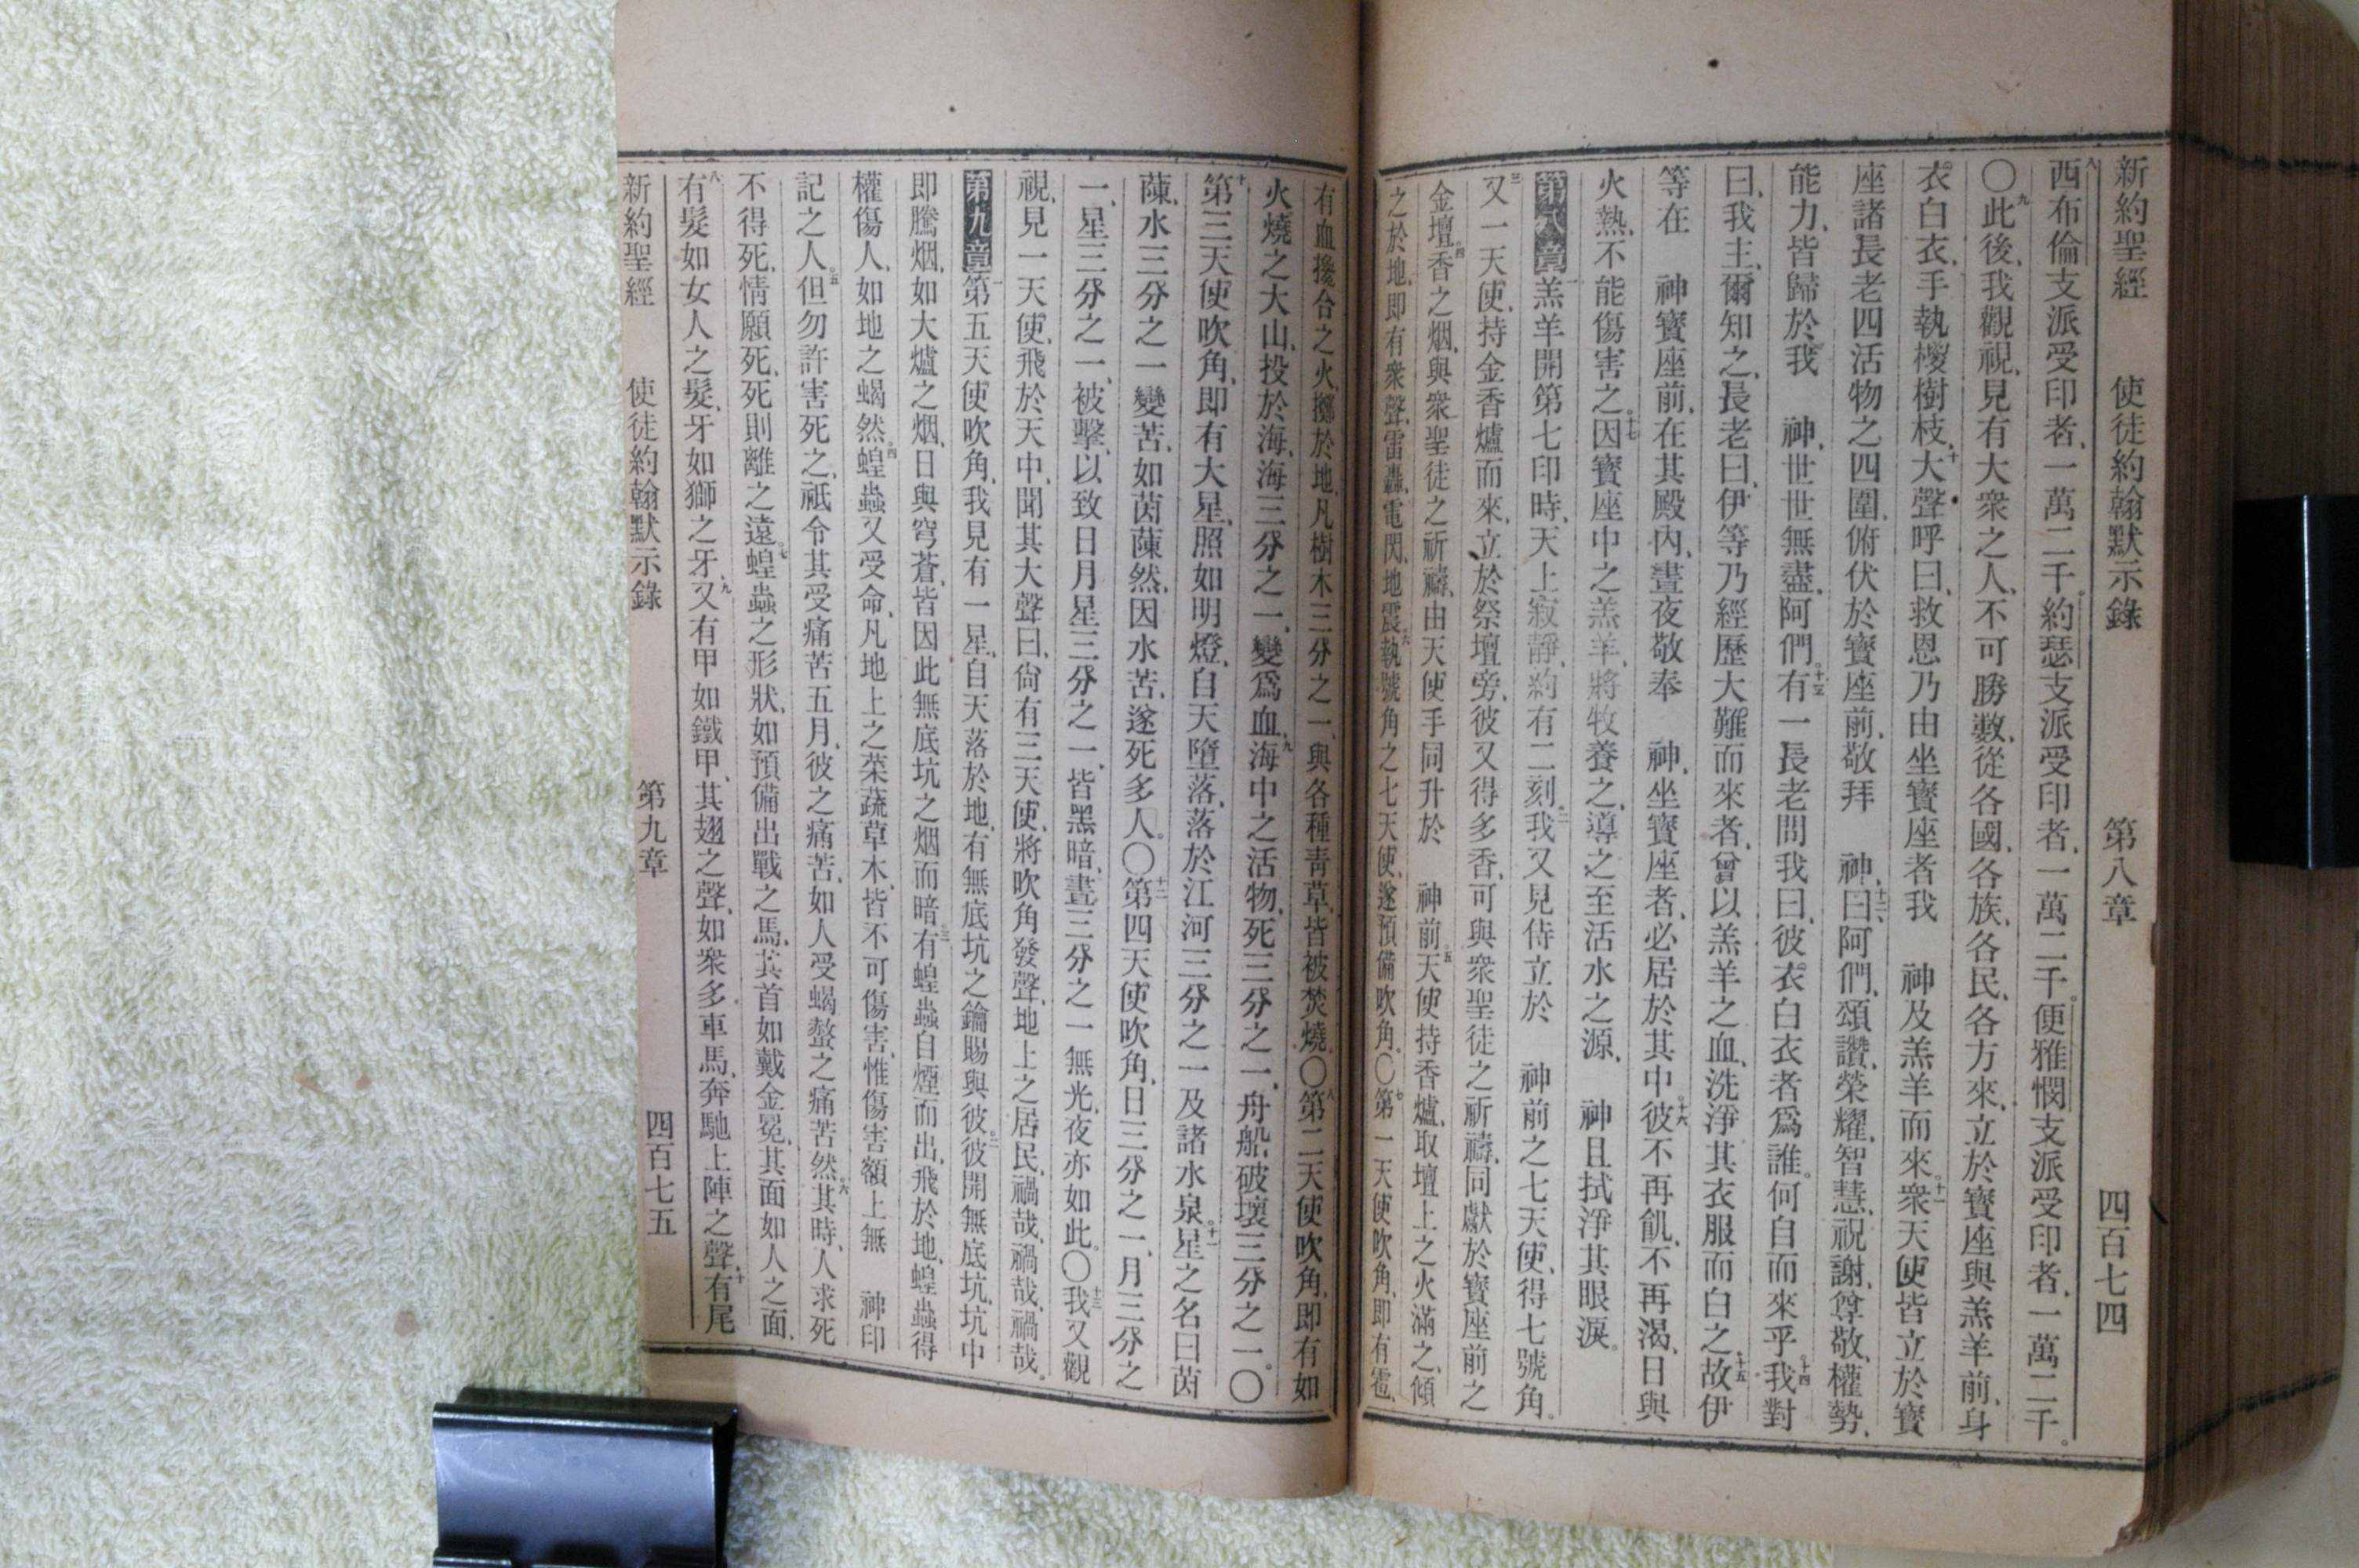 新約聖經 使徒約翰默示錄 第八章 四百七四
八西布倫支派受印者、一萬二千。約瑟支派受印者、一萬二千。便雅憫支派受印者、一萬二千。
〇九此後、我觀視、見有大衆之人、不可勝數、從各國、各族、各民、各方來、立於寳座與羔羊前、身
衣白衣、手執椶樹枝、十大聲呼曰、救恩乃由坐寳座者我 神及羔羊而來。十一衆天使皆立於寳
座諸長老四活物之四圍、俯伏於寳座前、敬拜 神、十二曰、阿們、頌讚、榮耀、智慧、祝謝、尊敬、權勢、
能力、皆歸於我 神、世世無盡、阿們。十三有一長老問我曰、彼衣白衣者爲誰。何自而來乎。十四我對
曰、我主、爾知之、長老曰、伊等乃經歷大難而來者、曾以羔羊之血、洗淨其衣服而白之。十五故伊
等在 神寳座前、在其殿內、晝夜敬奉 神、坐寳座者、必居於其中。十六彼不再飢、不再渴、日與
火熱、不能傷害之。十七因寳座中之羔羊、將牧養之、導之至活水之源、 神且拭淨其眼淚。
第八章 一羔羊開第七印時、天上寂靜、約有二刻。二我又見侍立於 神前之七天使、得七號角。
三又一天使、持金香爐而來、立於祭壇旁、彼又得多香、可與衆聖徒之祈禱、同獻於寳座前之
金壇。四香之烟、與衆聖徒之祈禱、由天使手同升於 神前。五天使持香爐、取壇上之火滿之、傾
之於地、卽有衆聲、雷轟、電閃、地震。六執號角之七天使、遂預備吹角。〇七第一天使吹角、卽有雹、
有血攙合之火、擲於地、凡樹木三分之一、與各種靑草、皆被焚燒。〇八第二天使吹角、卽有如
火燒之大山、投於海、海三分之一、變爲血、九海中之活物、死三分之一、舟船破壞三分之一。〇
十第三天使吹角、卽有大星、照如明燈、自天墮落、落於江河三分之一及諸水泉。十一星之名曰茵
蔯、水三分之一變苦、如茵蔯然、因水苦、遂死多人。〇十二第四天使吹角、日三分之一、月三分之
一、星三分之一、被擊、以致日月星三分之一、皆黑暗、晝三分之一無光、夜亦如此。〇十三我又觀
視、見一天使、飛於天中、聞其大聲曰、尙有三天使、將吹角發聲、地上之居民、禍哉、禍哉、禍哉。
第九章 一第五天使吹角、我見有一星、自天落於地、有無底坑之鑰賜與彼。二彼開無底坑、坑中
卽騰烟、如大爐之烟、日與穹蒼、皆因此無底坑之烟而暗。三有蝗蟲自煙而出、飛於地、蝗蟲得
權傷人、如地之蝎然。四蝗蟲又受命、凡地上之菜蔬草木、皆不可傷害、惟傷害額上無 神印
記之人。五但勿許害死之、祗令其受痛苦五月、彼之痛苦、如人受蝎螫之痛苦然。六其時、人求死
不得死、情願死、死則離之遠。七蝗蟲之形狀、如預備出戰之馬、其首如戴金冕、其面如人之面、
八有髮如女人之髮、牙如獅之牙、九又有甲如鐵甲、其翅之聲、如衆多車馬、奔馳上陣之聲、十有尾
新約聖經 使徒約翰默示錄 第九章 四百七五